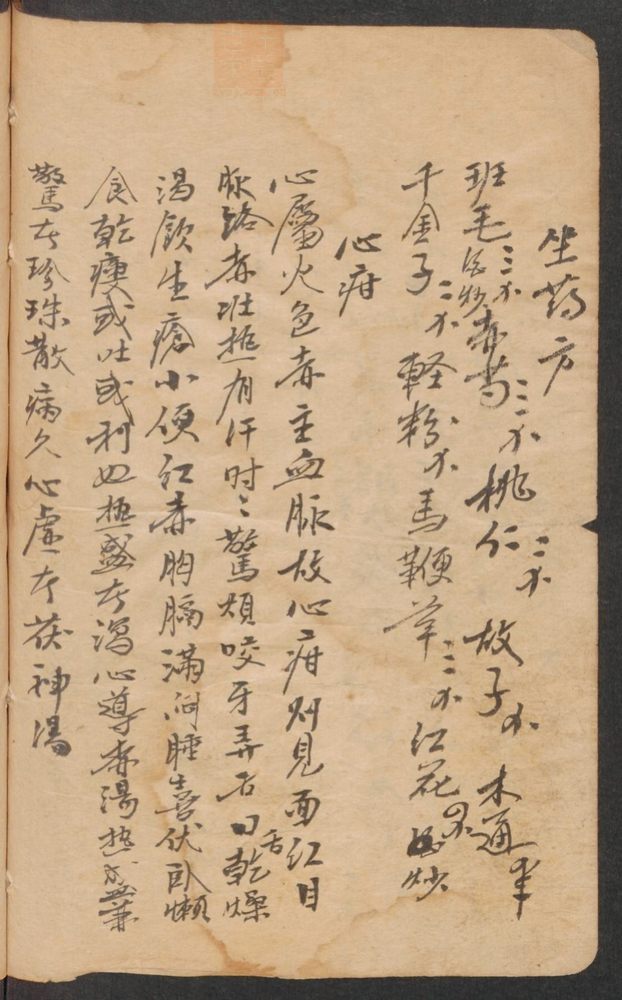 坐药方
班毛三个 炒 赤芍三个 桃仁三个 故子个 木通
千金子二个 軽粉个 馬鞭草三个 红花 炒
心疳
心屬火色赤主血脈故心疳则見面红目
脈络赤壮热有汗时〻驚烦咬牙弄舌口舌乾燥
渴飲生瘡小便红赤胸膈满闷睡喜伏卧懒
食乾瘦或吐或利也热盛者瀉心導赤湯热盛兼
驚者珍珠散病久心虚者茯神湯